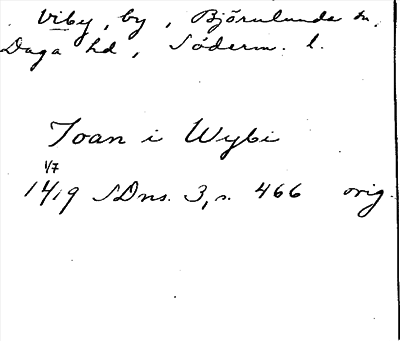 Viby, by, Björnlunda sn,
Daga hd, Söderm. l.
Joan i Wybi
1/7
1419 SDns. 3, s. 466 orig.